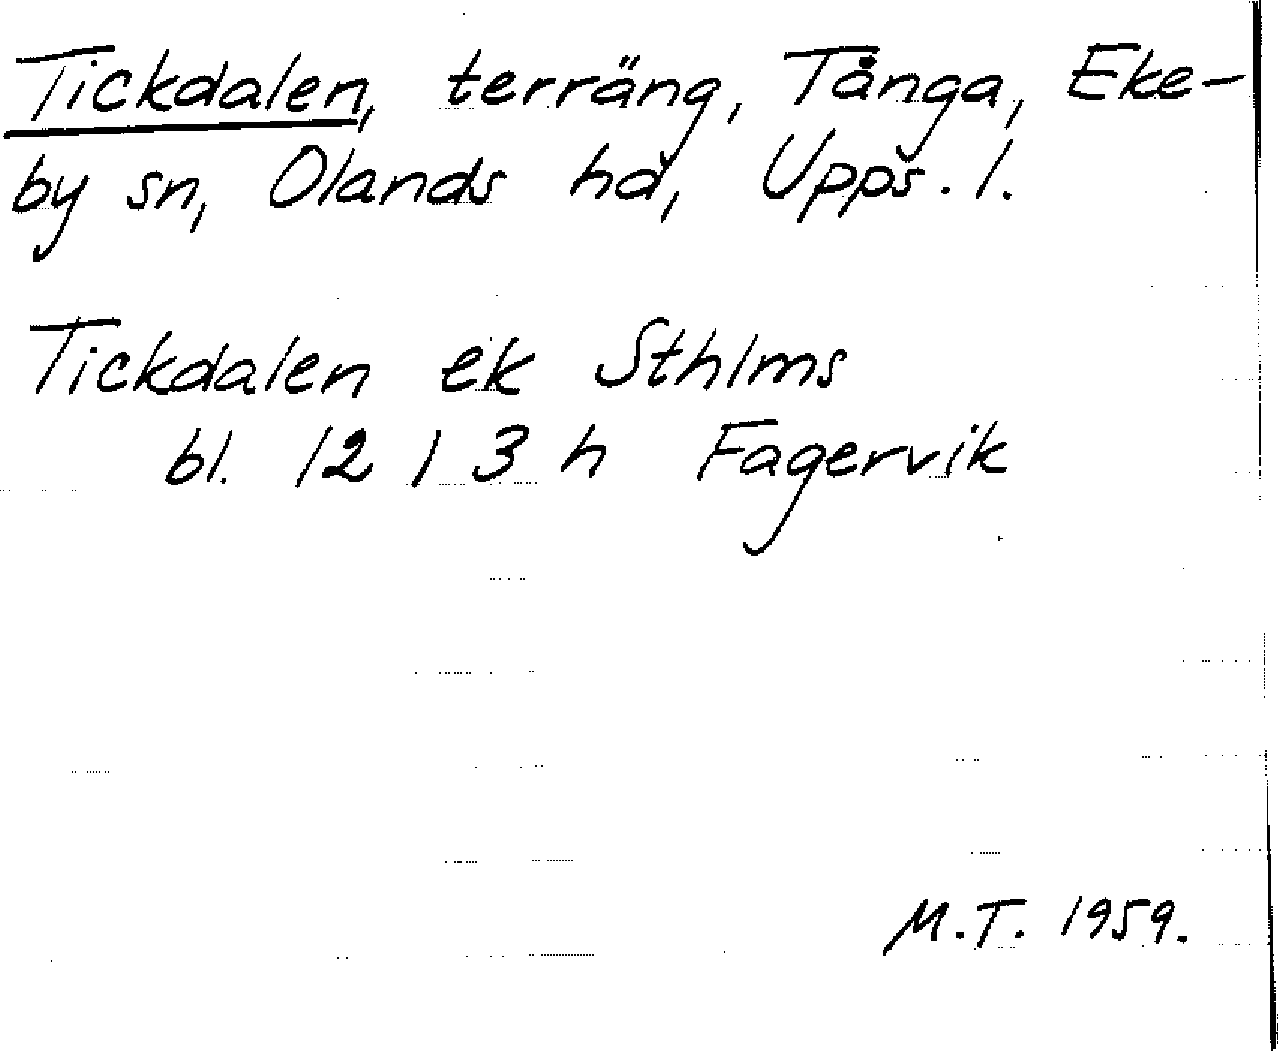 Tickdalen, terräng, Tånga, Eke-
by sn, Olands hd, Upps. l.
Tickdalen ek Sthlms
bl. 12 I 3 h Fagervik
M.T. 1959.